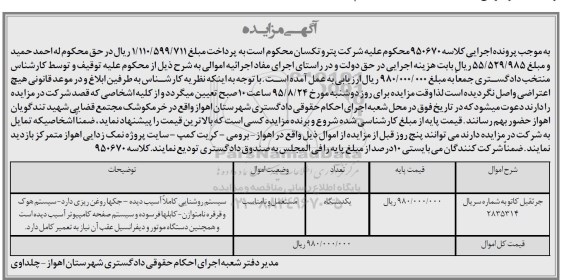 آگهی مزایده
به موجب پرونده اجرایی کلاسه ۹۵۰۶۷۰ محکوم علیه شرکت پترو تکسان محکوم است به پرداخت مبلغ ۱/۱۱۰/۵۹۹/۷۱۱ ریال در حق محکوم له احمد حمید
و مبلغ ۵۵/۵۲۹/۹۸۵ ریال بابت هزینه اجرایی در حق دولت و در راستای اجرای مفاد اجرائیه اموالی به شرح ذیل از محکوم علیه توقیف و توسط کارشناس
منتخب دادگستری جمعا به مبلغ ۹۸۰/۰۰۰/۰۰۰ ریال ارزیابی به عمل آمده است. با توجه به اینکه نظریه کارشناس به طرفین ابلاغ و در موعد قانونی هیچ
اعتراضی واصل نگردیده است لذا وقت مزایده برای روز دوشنبه مورخ ۹۵/۸/۲۴ ساعت ۱۰ صبح تعیین میگردد و از کلیه اشخاصی که قصد شرکت در مزایده
را دارند دعوت میشود که در تاریخ فوق در محل شعبه اجرای احکام حقوقی دادگستری شهرستان اهواز واقع در خرمکوشک مجتمع قضایی شهید تندگویان
اهواز حضور بهم رسانند. قیمت پایه از مبلغ کارشناسی شده شروع و برنده مزایده کسی است که بالاترین قیمت را پیشنهاد نماید، ضمنا اشخاصیکه تمایل
به شرکت در مزایده دارند می توانند پنج روز قبل از مزایده از اموال ذیل واقع در اهواز - برومی - کریت کمپ - سایت پروژه نمک زدایی اهواز متمرکز بازدید
نمایند. ضمنا شرکت کنندگان می بایستی ۱۰ درصد از مبلغ پایه را فی المجلس به صندوق دادگستری تودیع نمایند. کلاسه ۹۵۰۶۷۰
شرح اموال قیمت پایه تعداد وضعیت اموال توضیحات
جرثقیل کاتو به شماره سریال ۲۸۳۵۳۱۴ ۹۸۰/۰۰۰/۰۰۰ ریال یکدستگاه
سیستم روشنایی کاملا آسیب دیده - جکها روغن ریزی دارد - سیستم هوک
و قرقره نامتوازن - کابلها فرسوده و سیستم صفحه کامپیوتر آسیب دیده است
و همچنین دستگاه موتور و دیفرانسیل عقب آن نیاز به تعمیر کامل دارد.
قیمت کل اموال ۹۸۰/۰۰۰/۰۰۰ ریال
مدیر دفتر شعبه اجرای احکام حقوقی دادگستری شهرستان اهواز - چلداوی